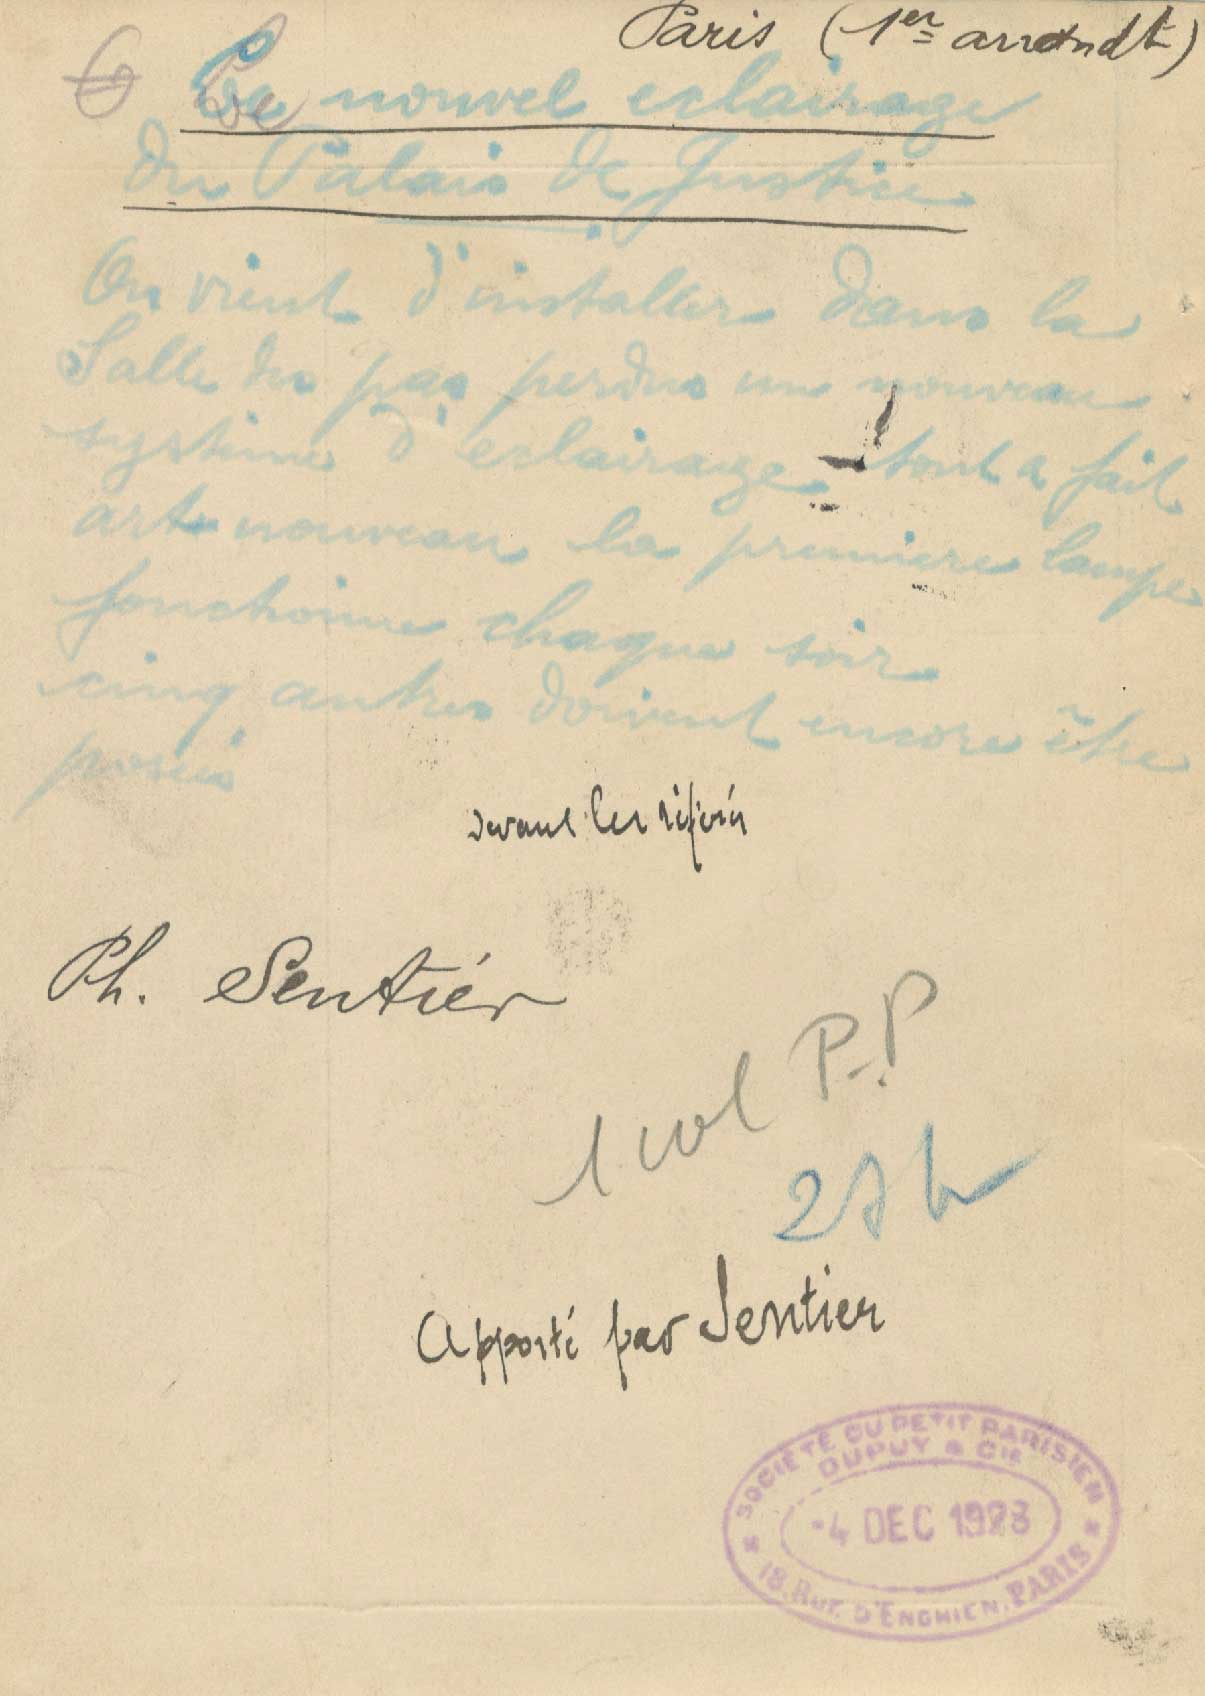 Paris (1er arrondt)
Le nouvel eclairage
du Palais de Justice
On vient d'installer dans la
Salle des pas perdus un nouveau
systeme d'eclairage tout a fait
art nouveau la premiere lampe
fonctionne chaque soir
cinq autres doivent encore être
posées
devant les référés
Ph. Sentier
1 col P.P
Apporté par Sentier
SOCIÉTÉ DU PETIT PARISIEN
DUPUY & CIE
-4 DEC 1923
18, RUE D'ENGHIEN, PARIS